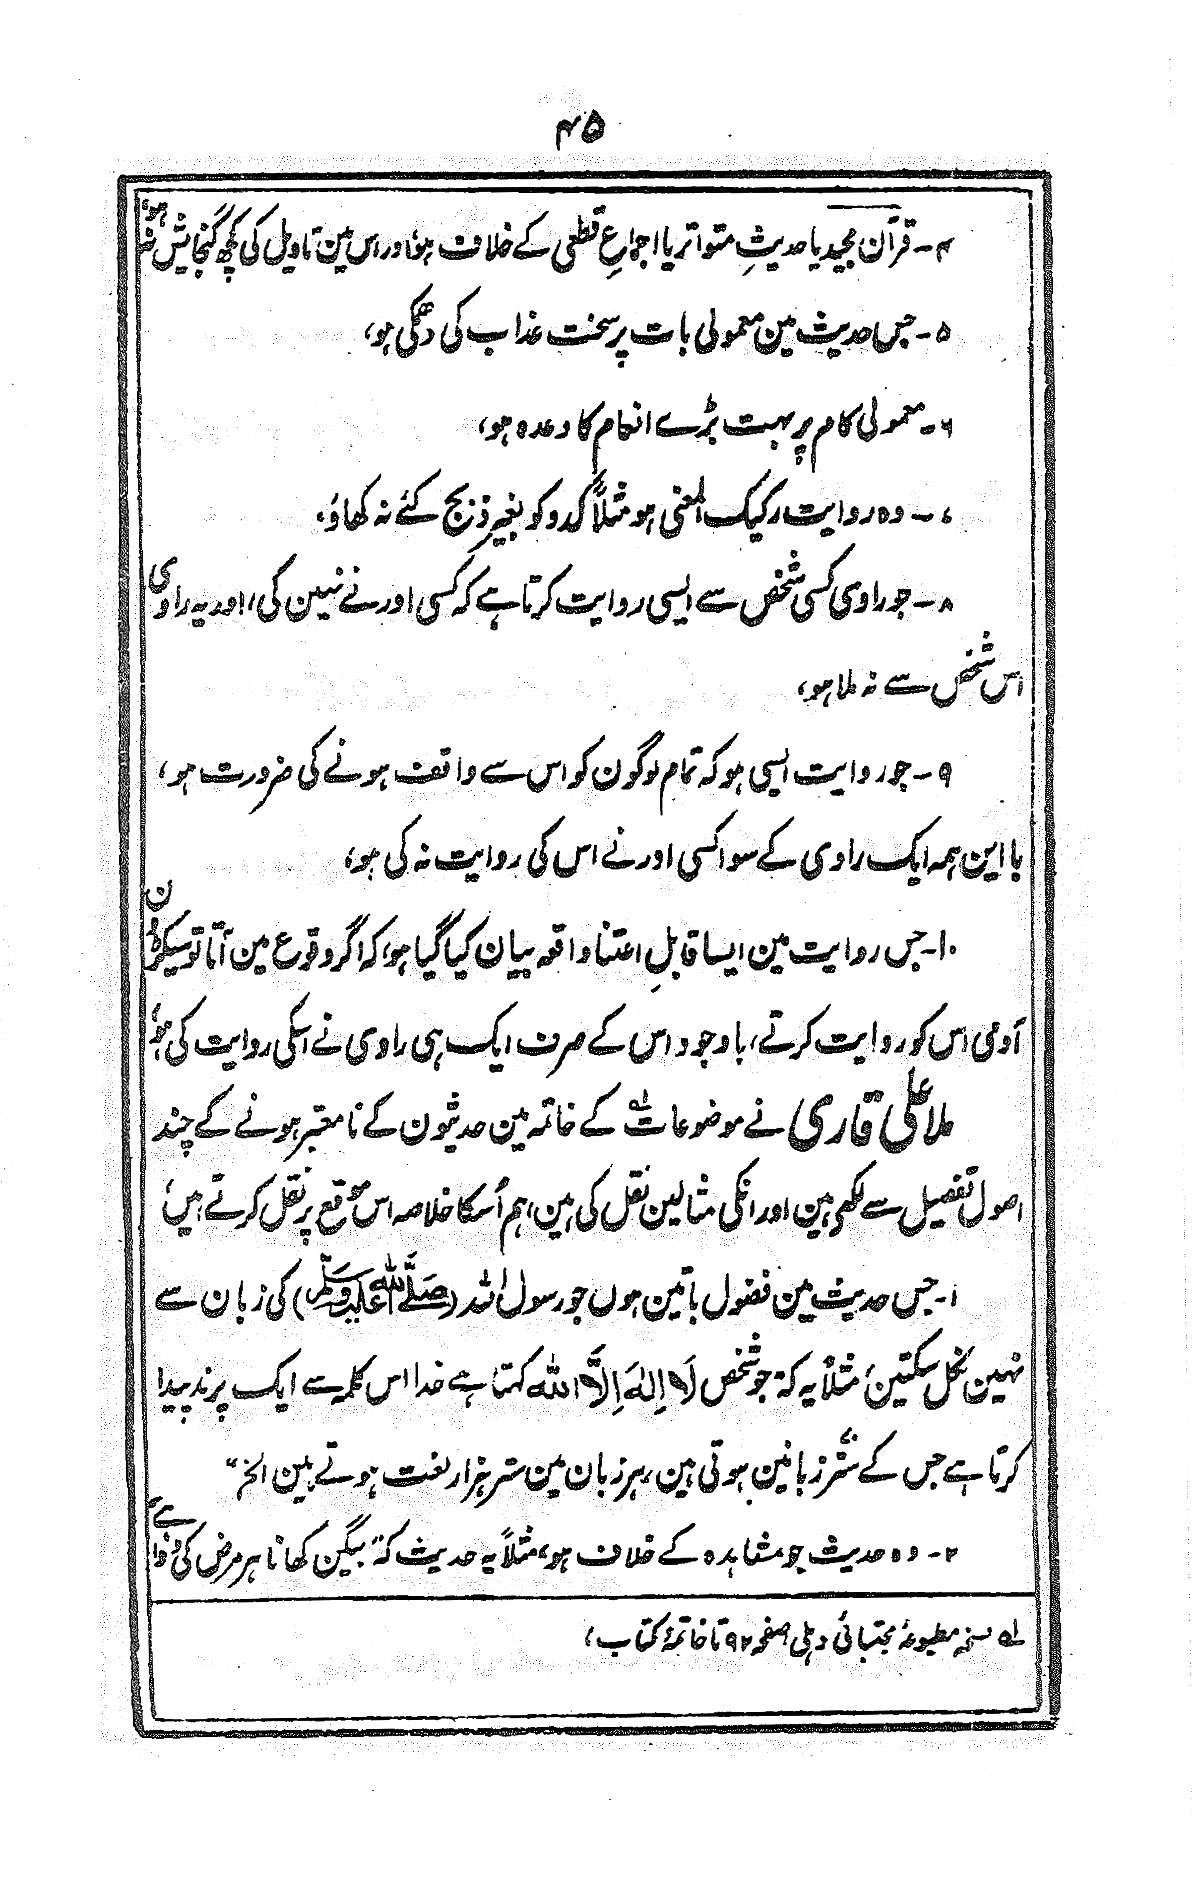 ۴۵
۴۔ قرآن مجید یا حدیثِ متواتر یا اجماعِ قطعی کے خلاف ہو، اور اس مین تاویل کی کچھ گنجایش نہ ہو،
۵۔ جس حدیث مین معمولی بات پر سخت عذاب کی دھمکی ہو،
۶۔ معمولی کام پر بہت بڑے انعام کا وعدہ ہو،
۷۔ وہ روایت رکیک المعنی ہو مثلاً کدو کو بغیر ذبح کئے نہ کھاؤ،
۸۔ جو راوی کسی شخص سے ایسی روایت کرتا ہے کہ کسی اور نے نہین کی، اور یہ راوی
اس شخص سے نہ ملا ہو،
۹۔ جو روایت ایسی ہو کہ تمام لوگون کو اس سے واقف ہونے کی ضرورت ہو،
با این ہمہ ایک راوی کے سوا کسی اور نے اس کی روایت نہ کی ہو،
۱۰۔ جس روایت مین ایسا قابلِ اعتنا واقعہ بیان کیا گیا ہو، کہ اگر وقوع مین آتا تو سیکڑون
آدمی اس کو روایت کرتے، باوجود اس کے صرف ایک ہی راوی نے اسکی روایت کی ہو،
ملا علی قاری نے موضوعات لہ کے خاتمہ مین حدیثون کے نامعتبر ہونے کے چند
اصول تفصیل سے لکھے ہین اور انکی مثالین نقل کی ہین، ہم اُسکا خلاصہ اس موقع پر نقل کرتے ہین،
۱۔ جس حدیث مین فضول باتین ہوں جو رسول اللہ (صَلَّی اللہ عَلَیہ وَسَلَّم) کی زبان سے
نہین نکل سکتین، مثلاً یہ کہ" جو شخص لَا اِلٰہَ اِلَّا اللہ کہتا ہے خدا اس کلمہ سے ایک پرند پیدا
کرتا ہے جس کے ستّر زبانین ہوتی ہین، ہر زبان مین ستر ہزار لغت ہوتے ہین الخ"
۲۔ وہ حدیث جو مشاہدہ کے خلاف ہو، مثلاً یہ حدیث کہ" بیگن کھانا ہر مرض کی دوا ہے"
لہ نسخہ مطبوعۂ مجتبائی دہلی صفحہ ۹۲ تا خاتمۂ کتاب،